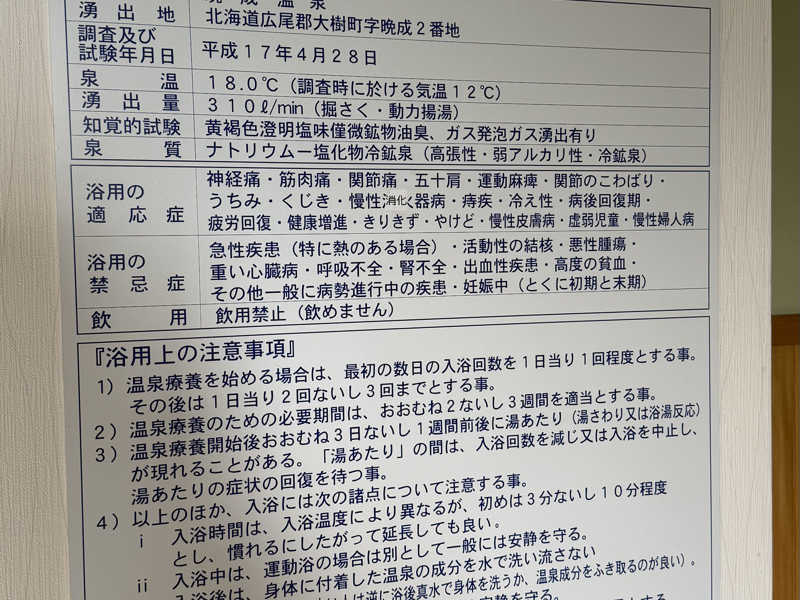 湧出地 北海道広尾郡大樹町字晩成2番地
調査及び
試験年月日 平成17年4月28日
泉温 18.0℃(調査時に於ける気温12℃)
湧出量 310ℓ/min(掘さく・動力揚湯)
知覚的試験 黄褐色澄明塩味僅微鉱物油臭、ガス発泡ガス湧出有り
泉質 ナトリウム一塩化物冷鉱泉(高張性・弱アルカリ性・冷鉱泉)
浴用の適応症 神経痛・筋肉痛・関節痛・五十肩・運動麻痺・関節のこわばり・
うちみ・くじき・慢性消化器病・痔疾・冷え性・病後回復期・
疲労回復・健康増進・きりきず・やけど・慢性皮膚病・虚弱児童・慢性婦人病
浴用の禁忌症 急性疾患(特に熱のある場合)・活動性の結核・悪性腫瘍・
重い心臓病・呼吸不全・腎不全・出血性疾患・高度の貧血・
その他一般に病勢進行中の疾患・妊娠中(とくに初期と末期)
飲用 飲用禁止(飲めません)
『浴用上の注意事項』
1)温泉療養を始める場合は、最初の数日の入浴回数を1日当り1回程度とする事。
その後は1日当り2回ないし3回までとする事。
2)温泉療養のための必要期間は、おおむね2ないし3週間を適当とする事。
3)温泉療養開始後おおむね3日ないし1週間前後に湯あたり(湯さわり又は浴湯反応)
が現れることがある。「湯あたり」の間は、入浴回数を減じ又は入浴を中止し、
湯あたりの症状の回復を待つ事。
4)以上のほか、入浴には次の諸点について注意する事。
i 入浴時間は、入浴温度により異なるが、初めは3分ないし10分程度
とし、慣れるにしたがって延長しても良い。
ii 入浴中は、運動浴の場合は別として一般には安静を守る。
入浴後は、身体に付着した温泉の成分を水で洗い流さない
は逆に浴後真水で身体を洗うか、温泉成分をふき取るのが良い)。
安静を守る。